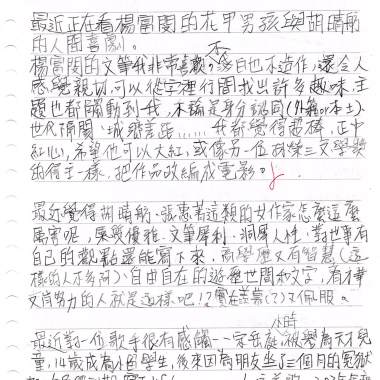 最近正在看楊富閔的花甲男孩與胡晴舫
的人間喜劇。
楊富閔的文筆我非常喜歡，不
白也不造作，還令人
感覺親切，可以從字裡行間找出許多趣味，主
題也都觸動到我，不論是身分認同(外籍or本土)、
世代隔閡、城鄉差距……我都覺得超棒，正中
紅心，希望他可以大紅，或像另一位林榮三文學獎
的得主一樣，把作品改編成電影。
最近覺得胡晴舫、張惠菁這類的女作家怎麼這麼
厲害呢，氣質優雅、文筆犀利、洞察人性、對世事有
自己的觀點還能寫下來，高學歷又有智慧(這
樣的人不多阿)、自由自在的遊歷世間和文字，有才華
又肯努力的人就是這樣吧！實在羨慕(?)又佩服。
最近對一位歌手很有感觸－宇岳庭，
小時
被譽為天才兒
童，14歲成為小留學生，後來因為朋友坐了三個月的冤獄